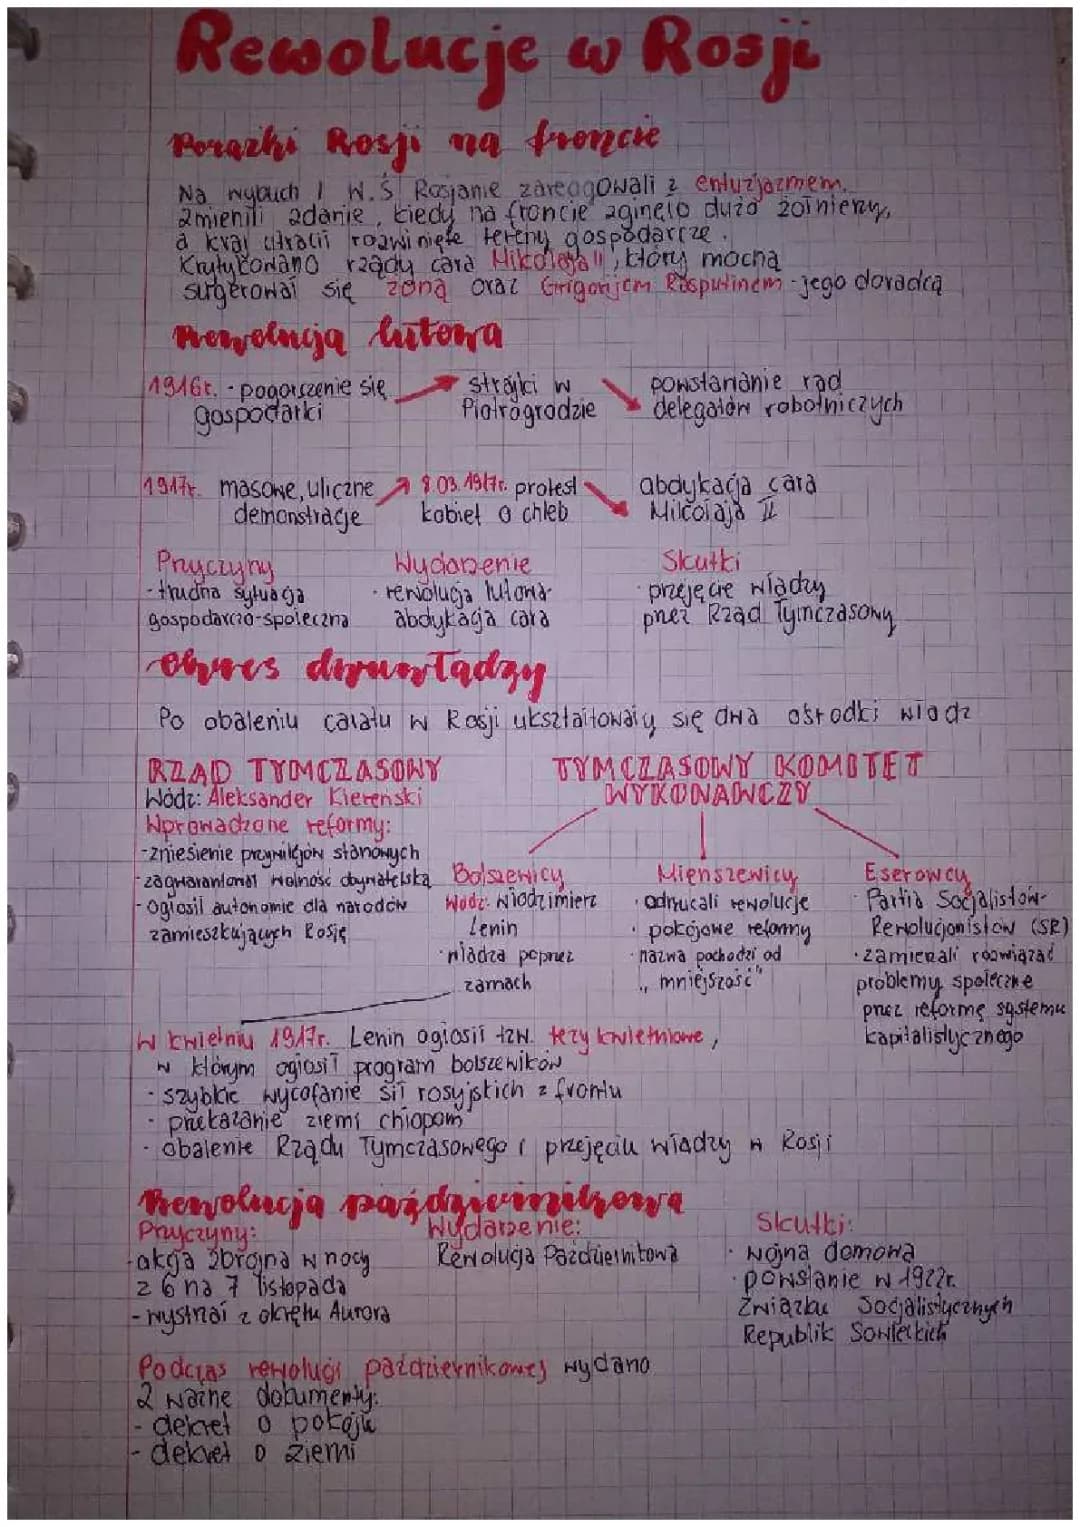 Rewolucje w Rosji
Porażki Rosji na froncie
Na wybuch I W.Ś Rosjanie zareagowali z entuzjazmem.
Zmienili zdanie, kiedy na froncie zginęło dużo żołnierzy,
a kraj utracił rozwinięte tereny gospodarcze.
Krytykowano rządy cara Mikołaja II, który mocna
sugerował się żoną oraz Grigorijem Rasputinem - jego doradcą
Rewolucja lutowa
1916r. - pogorszenie się
gospodarki
strajki w
Piotrogrodzie
powstanianie rad
delegatów robotniczych
1917r. masowe, uliczne
demonstracje
8.03.1917r. protest
kobiet o chleb
abdykacja cara
Mikołaja II
Przyczyny
- trudna sytuacja
gospodarczo-społeczna
Wydarzenie
· rewolucja lutowa-
abdykacja cara
Skutki
· przejęcie władzy
przez Rząd Tymczasowy
Okres dwuwładzy
Po obaleniu caratu w Rosji ukształtowały się dwa ośrodki władz
RZĄD TYMCZASOWY
Wódz: Aleksander Kiereński
Wprowadzone reformy:
- zniesienie przywilejów stanowych
- zagwarantował wolność obywatelską
- Ogłosił autonomie dla narodów
zamieszkujących Rosję
TYMCZASOWY KOMITET
WYKONAWCZY
Bolszewicy
Wódz: Włodzimierz
Lenin
· władza poprzez
zamach
Mienszewicy
· odrzucali rewolucje
· pokojowe reformy
· nazwa pochodzi od
„mniejszość"
Eserowcy
· Partia Socjalistów-
Rewolucjonistów (SR)
· zamierzali rozwiązać
problemy społeczne
przez reformę systemu
kapitalistycznego
W kwietniu 1917r. Lenin ogłosił tzw. tezy kwietniowe,
w którym ogłosił program bolszewików
· szybkie wycofanie sił rosyjskich z frontu
· przekazanie ziemi chłopom
· obalenie Rządu Tymczasowego i przejęciu władzy w Rosji
Rewolucja październikowa
Przyczyny:
- akcja zbrojna w nocy
z 6 na 7 listopada
- wystrzał z okrętu Aurora
Wydarzenie:
Rewolucja Październikowa
Skutki:
· wojna domowa
· powstanie w 1922r.
Związku Socjalistycznych
Republik Sowieckich
Podczas rewolucji październikowej wydano
2 ważne dokumenty:
- dekret o pokoju
- dekret o ziemi